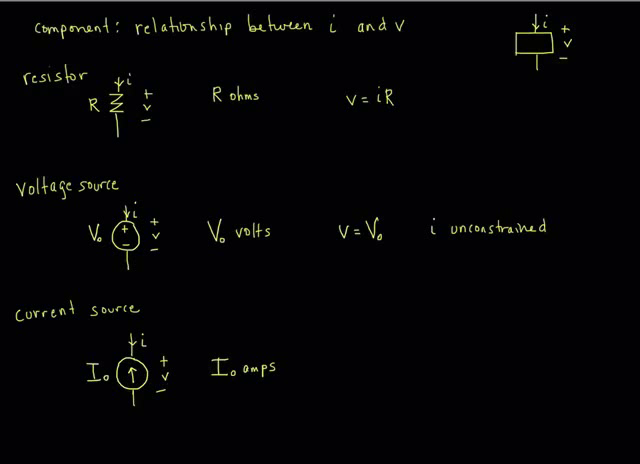 component: relationship between i and v
i
+
v
−
resistor
i
R + v − R ohms v = iR
Voltage source
i
V₀ + − + v − V₀ volts v = V₀ i unconstrained
current source
i
I₀ + v − I₀ amps